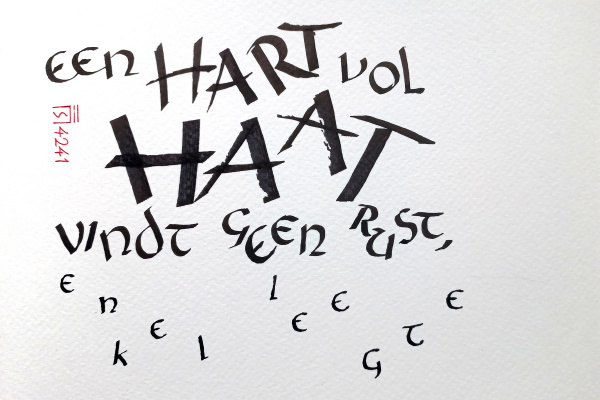 een HART vol
HAAT
vindt geen rust,
enkel leegte
S 4241